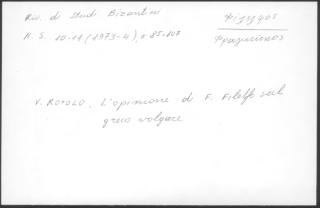 Riv. di Studi Bizantini
N. S. 10-11 (1973-4), σ. 85-107
V. ROTOLO, L'opinione di F. Filelfo sul
greco volgare